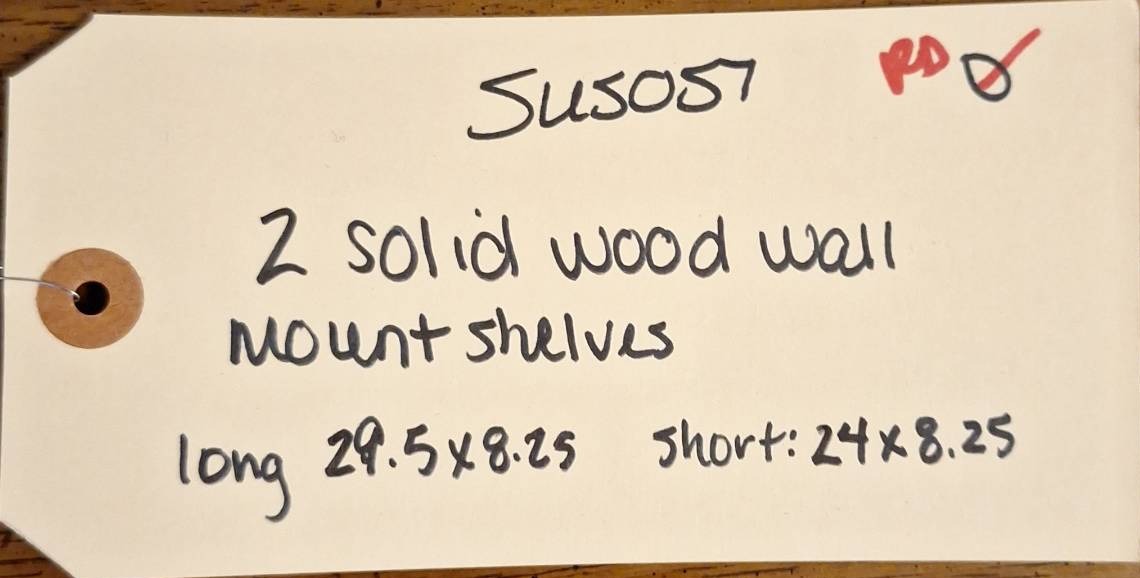 SUS057 RD
2 solid wood wall
mount shelves
long 29.5x8.25 short: 24x8.25